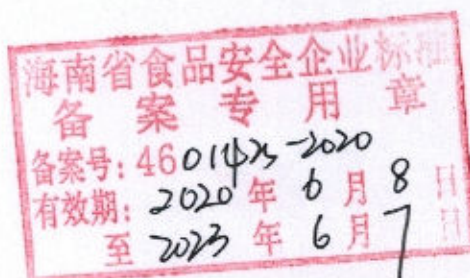 海南省食品安全企业标准
备案专用章
备案号：460142S-2020
有效期：2020年6月8日
至2023年6月7日